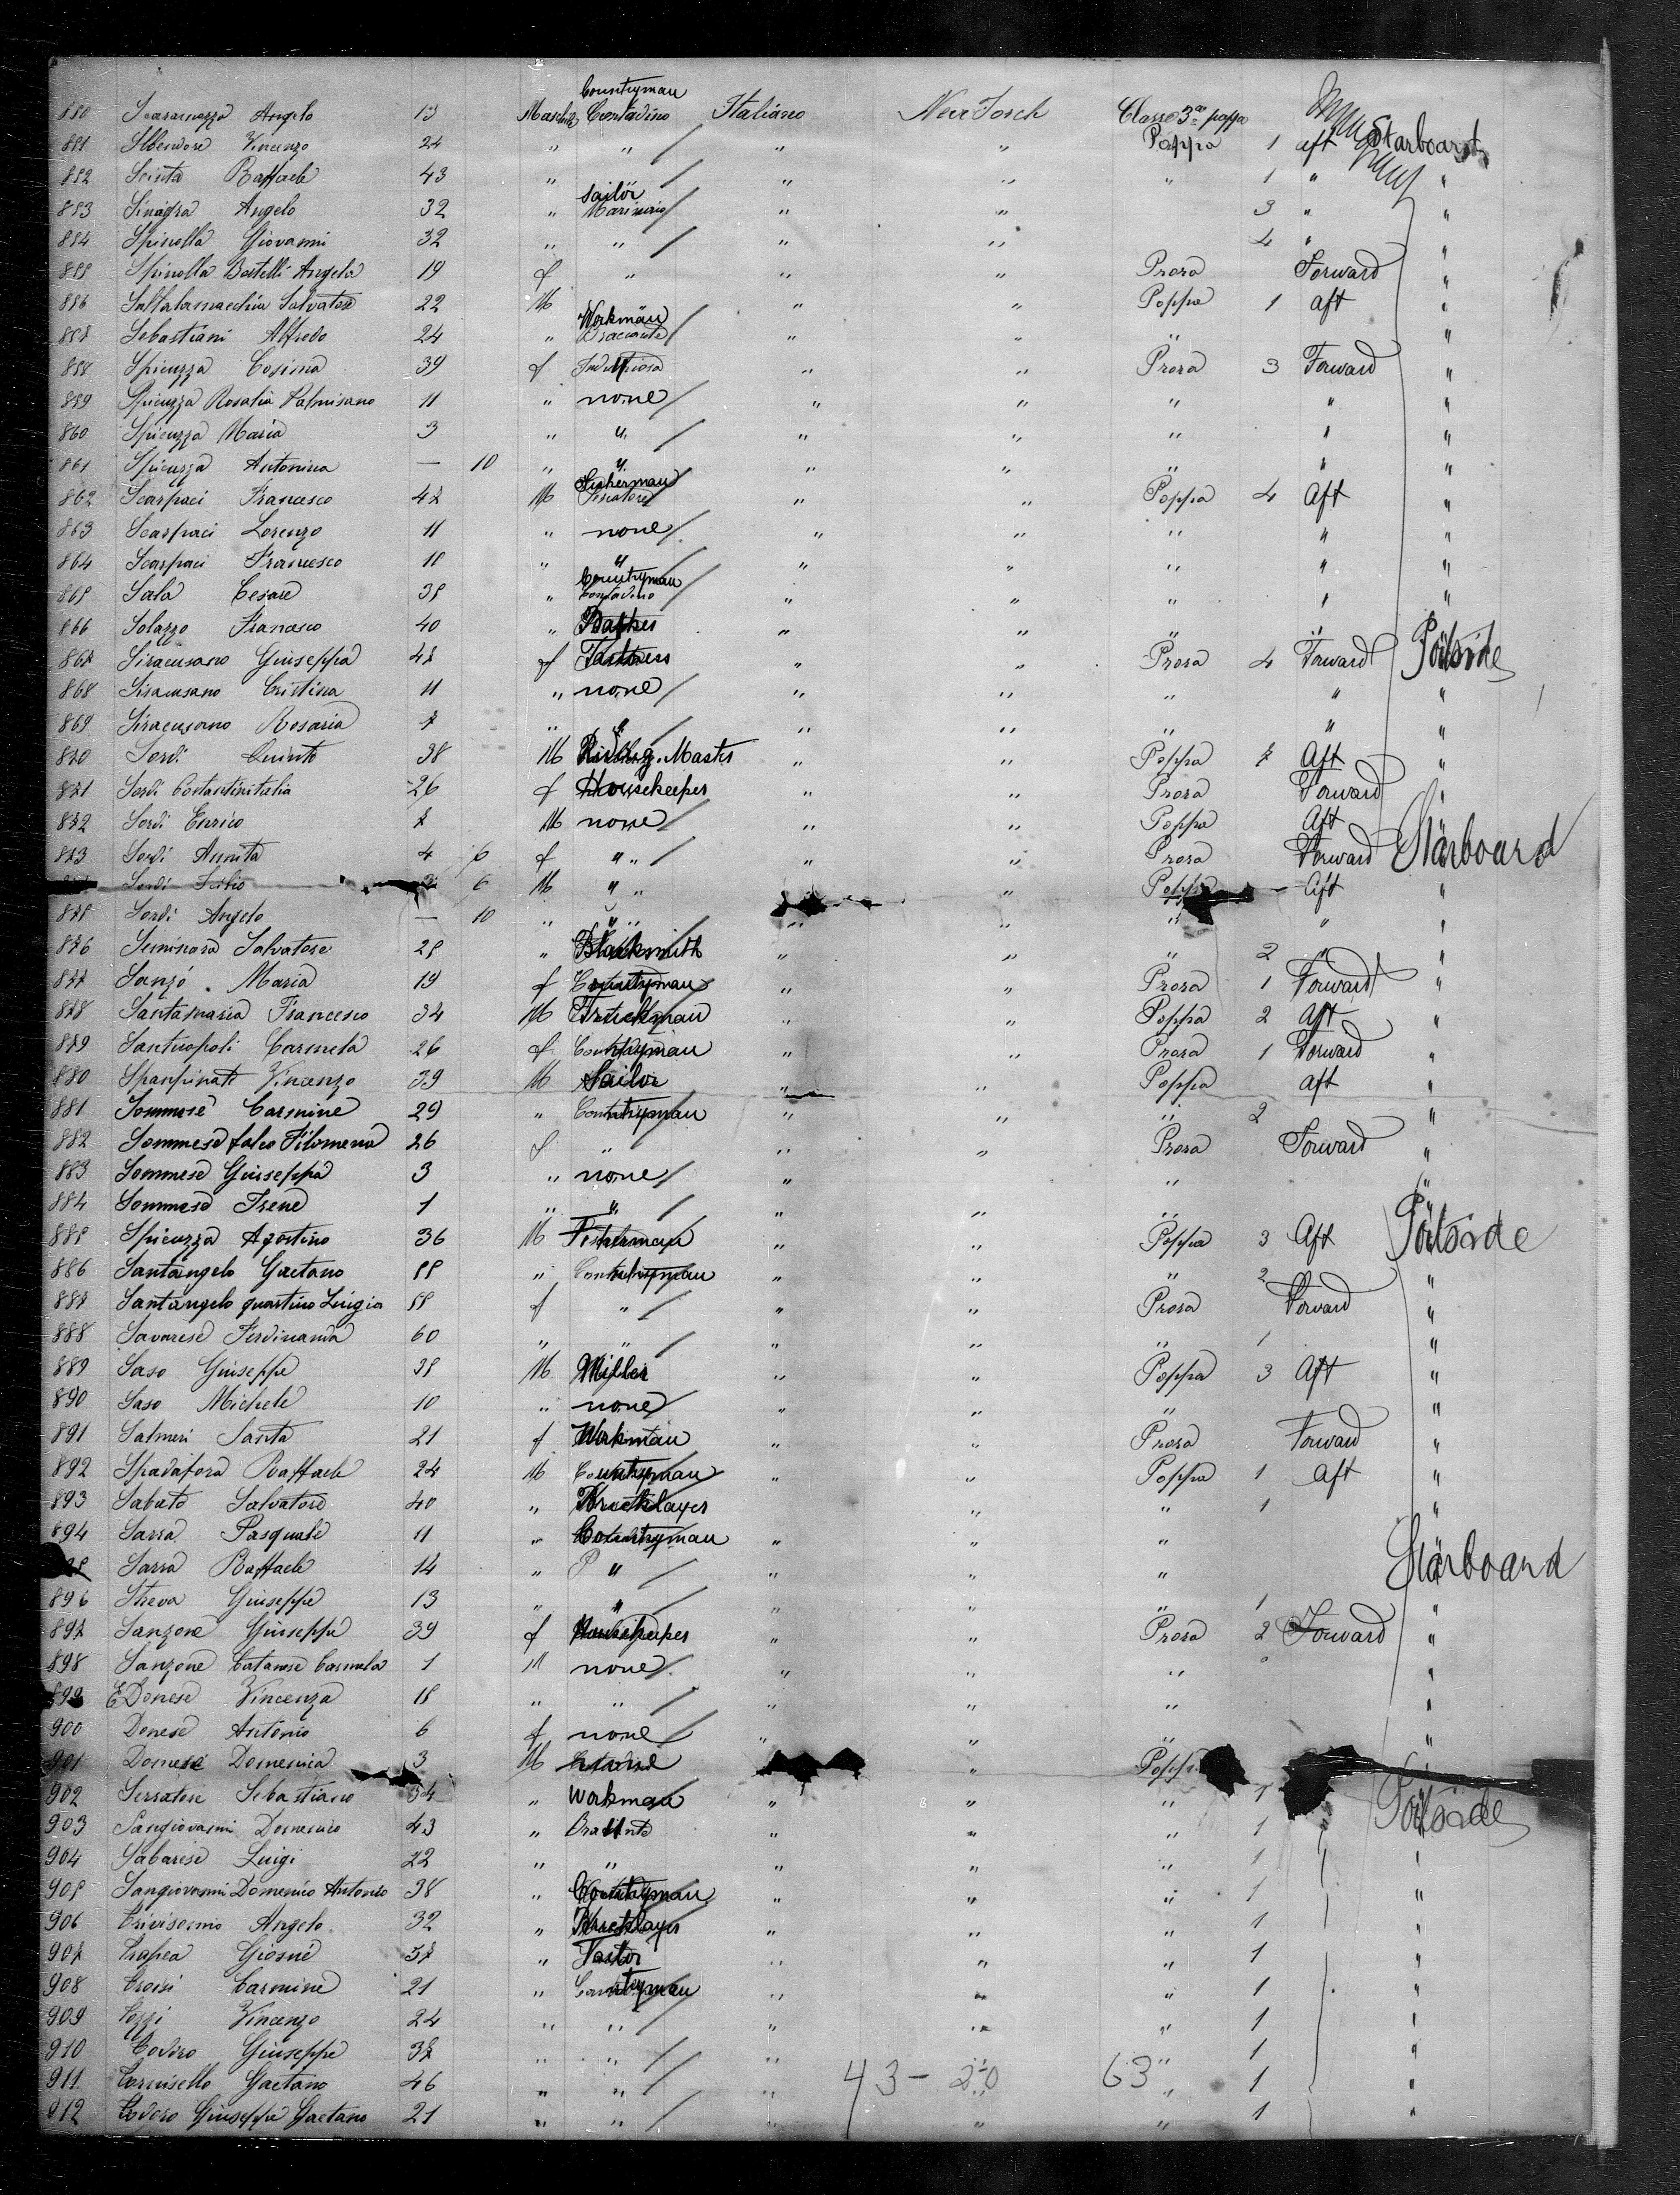 850 Scaramazza Angelo 13 Maschile Countryman Contadino Italiano New Jorch Classe 3a poppa
851 Vincenzo 24 " " / " " Poppa 1 aft Starboard
852 Scinta Raffaele 43 " " " " 1 " "
853 Sinagra Angelo 32 " Sailor Marinario / " " 3 " "
854 Spinella Giovanni 32 " " / " " 4 " "
855 Spinella Bertelli Angela 19 f " " " Prora Forward "
856 Saltalamacchia Salvatore 22 M / " " Poppa 1 aft "
857 Sebastiani Alfredo 24 " Workman Bracciante / " " " "
858 Spicuzza Cosima 39 f " " Prora 3 Forward "
859 Spicuzza Rosalia Palmisano 11 " none / " " " " "
860 Spicuzza Maria 3 " " / " " " " "
861 Spicuzza Antonina — 10 " " " " " " "
862 Scarpaci Francesco 47 M Fisherman " " Poppa 4 Aft "
863 Scarpaci Lorenzo 11 " none / " " " " "
864 Scarpaci Francesco 10 " " / " " " " "
865 Sala Cesare 35 " Countryman Contadino / " " " " "
866 Solazzo Francesco 40 " " " " "
867 Siracusano Giuseppa 47 f " " Prora 4 Forward Portside
868 Siracusano Cristina 11 " none / " " " " "
869 Siracusano Rosaria 7 " " / " " " " "
870 Sordi Quinto 38 M Master " " Poppa 7 Aft "
871 Sordi Costantini Italia 26 f Housekeeper " " Prora Forward "
872 Sordi Enrico 7 M none / " " Poppa Aft Starboard
873 Sordi Annita 4 6 f " / " " Prora Forward
Sordi 6 M " " Poppa Aft "
875 Sordi Angelo — 10 " " " " " " "
876 Seminara Salvatore 25 " Blacksmith " " " 2 " "
877 Sanzó Maria 19 f Countryman " " Prora 1 Forward "
878 Santamaria Francesco 34 M Truckman " " Poppa 2 Aft "
879 Santuopoli Carmela 26 f Countryman " " Prora 1 Forward "
880 Spanpinato Vincenzo 39 M Sailor " " Poppa aft "
881 Sommese Carmine 29 " Countryman " " " 2 "
882 Sommese falco Filomena 26 f " " " Prora Forward "
883 Sommese Giuseppa 3 " none / " " "
884 Sommese Irene 1 " " / " " "
885 Spicuzza Agostino 36 M Fisherman " " Poppa 3 Aft Portside
886 Santangelo Gaetano 55 " Countryman " " " 2 "
887 Santangelo quartino Luigia 55 f " / " " Prora Forward "
888 Savarese Ferdinanda 60 " " / " " " 1 "
889 Saso Giuseppe 35 M Miller " " Poppa 3 Aft "
890 Saso Michele 10 " none / " " " "
891 Salmeri Santa 21 f Workman " " Prora Forward "
892 Spadafora Raffaele 24 M Countryman " " Poppa 1 aft "
893 Sabato Salvatore 40 " Bricklayer " " 1 "
894 Sarra Pasquale 11 " Countryman " " "
Sarra Raffaele 14 " " / " " " Starboard
896 Streva Giuseppe 13 " " / " " " 1 "
897 Sanzone Giuseppa 39 f Housekeeper " " Prora 2 Forward "
898 Sanzone Catanese Carmela 1 " none / " " " "
899 Donese Vincenza 18 " " / " " " "
900 Donese Antonio 6 f none / " " " "
901 Donese Domenica 3 M " Poppa "
902 Serratore Sebastiano 34 " Workman " " " 1 Portside
903 Sangiovanni Domenico 43 " " " " 1
904 Sabarese Luigi 22 " " " " " 1 "
905 Sangiovanni Domenico Antonio 38 " Countryman " " " 1 "
906 Angelo 32 " Bricklayer " " " 1 "
907 Trapea Giosué 37 " " " " 1 "
908 Troisi Carmine 21 " Countryman " " " 1 "
909 Tozzi Vincenzo 24 " " / " " " 1 "
910 Todiro Giuseppe 37 " " / " " " 1 "
911 Tornisello Gaetano 46 " " / " 43 - 20 63 " 1 "
912 Todoro Giuseppe Gaetano 21 " " / " " " 1 "